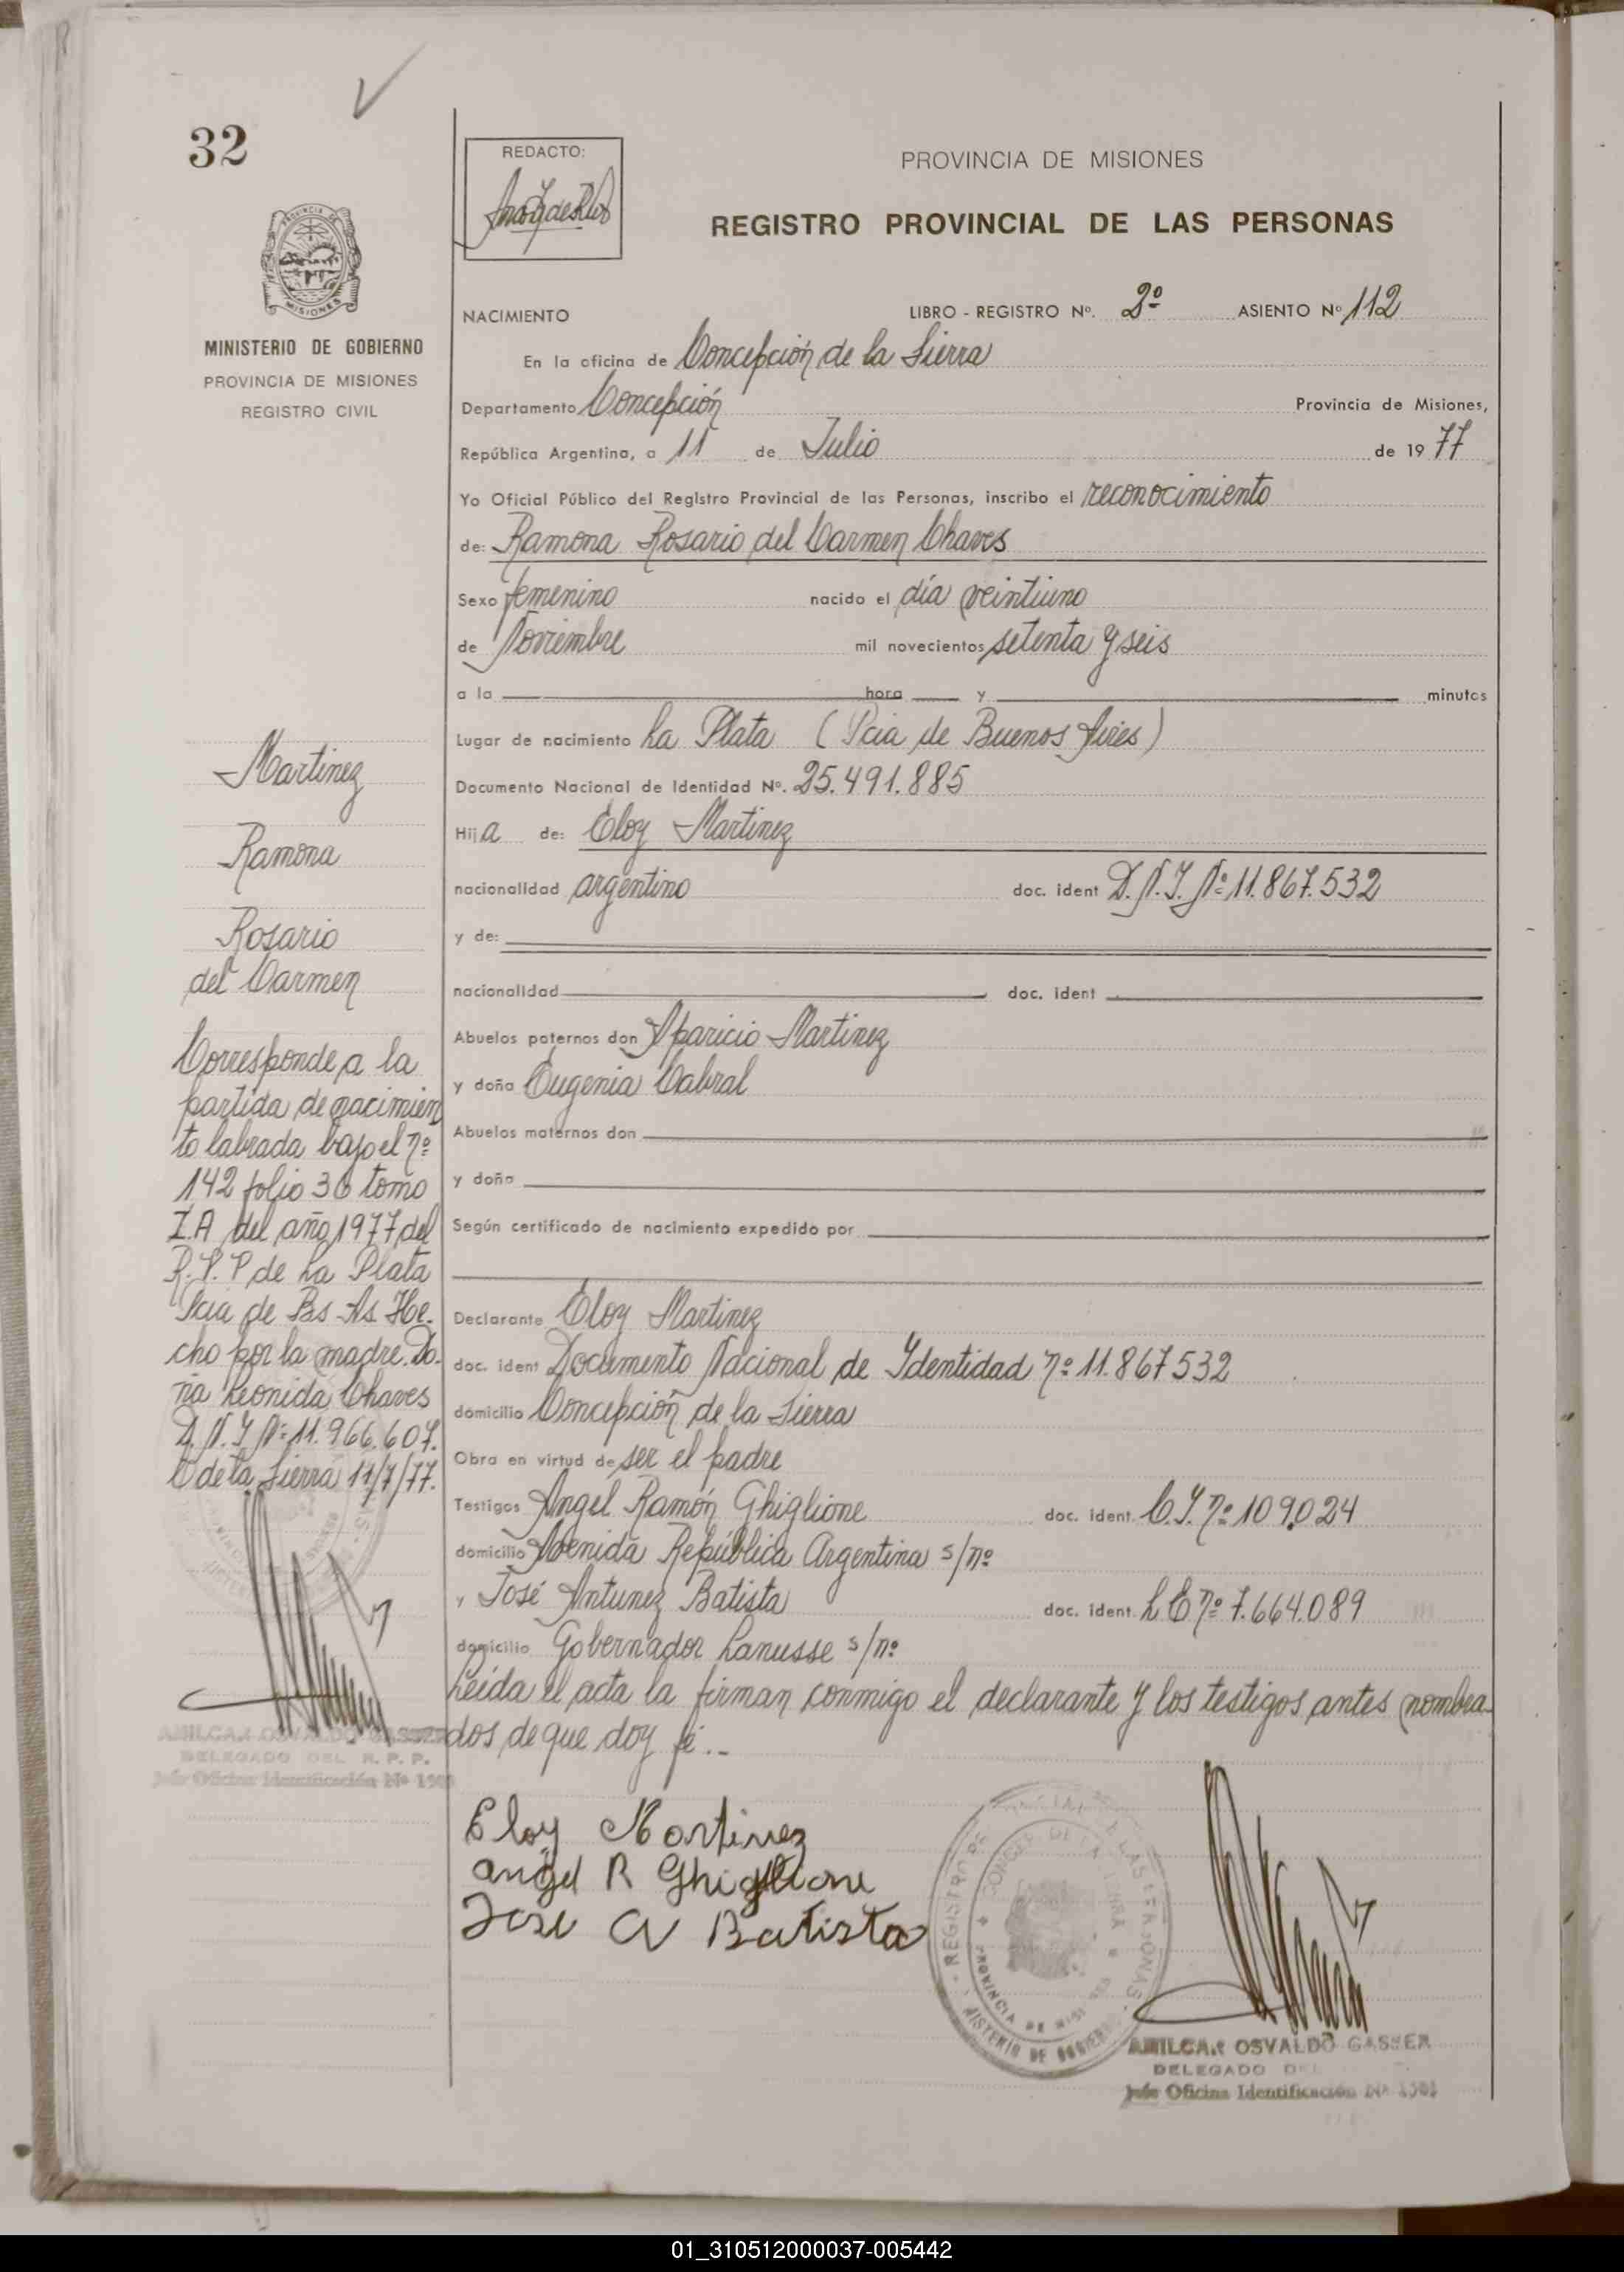 32
REDACTO:
PROVINCIA DE MISIONES
REGISTRO PROVINCIAL DE LAS PERSONAS
MISIONES
MINISTERIO DE GOBIERNO
PROVINCIA DE MISIONES
REGISTRO CIVIL
NACIMIENTO LIBRO - REGISTRO Nº. 2º ASIENTO Nº 112
En la oficina de Concepción de la Sierra
Departamento Concepción Provincia de Misiones,
República Argentina, a 11 de Julio de 1977
Yo Oficial Público del Registro Provincial de las Personas, inscribo el reconocimiento
de: Ramona Rosario del Carmen Chaves
Sexo femenino nacido el día veintiuno
de Noviembre mil novecientos setenta y seis
a la hora y minutos
Lugar de nacimiento La Plata (Pcia de Buenos Aires)
Documento Nacional de Identidad Nº. 25.491.885
Hija de: Eloy Martinez
nacionalidad argentino doc. ident D.N.I. Nº 11.867.532
y de:
nacionalidad doc. ident
Abuelos paternos don Aparicio Martinez
y doña Eugenia Cabral
Abuelos maternos don
y doña
Según certificado de nacimiento expedido por
Declarante Eloy Martinez
doc. ident Documento Nacional de Identidad nº 11.867532
domicilio Concepción de la Sierra
Obra en virtud de ser el padre
Testigos Angel Ramón Ghiglione doc. ident. C.I. nº 109.024
domicilio Avenida República Argentina s/nº
y José Antunez Batista doc. ident. L E nº 7.664.089
domicilio Gobernador Lanusse s/nº
Leída el acta la firman conmigo el declarante y los testigos antes nombra-
dos de que doy fé..-
Martinez
Ramona
Rosario
del Carmen
Corresponde a la
partida de nacimien
to labrada bajo el nº
142 folio 36 tomo
I.A del año 1977 del
R.P.P de La Plata
Pcia de Bs-As. He-
cho por la madre Do-
ña Leonida Chaves
D.N.I Nº 11.966.607.
C de la Sierra 11/7/77.
AMILCAR OSVALDO GASSER
DELEGADO DEL R. P. P.
Jefe Oficina Identificación Nº 1501
Eloy Martinez
angel R Ghiglione
Jose A Batista
AMILCAR OSVALDO GASSER
DELEGADO DEL
Jefe Oficina Identificación Nº 1501
01_310512000037-005442